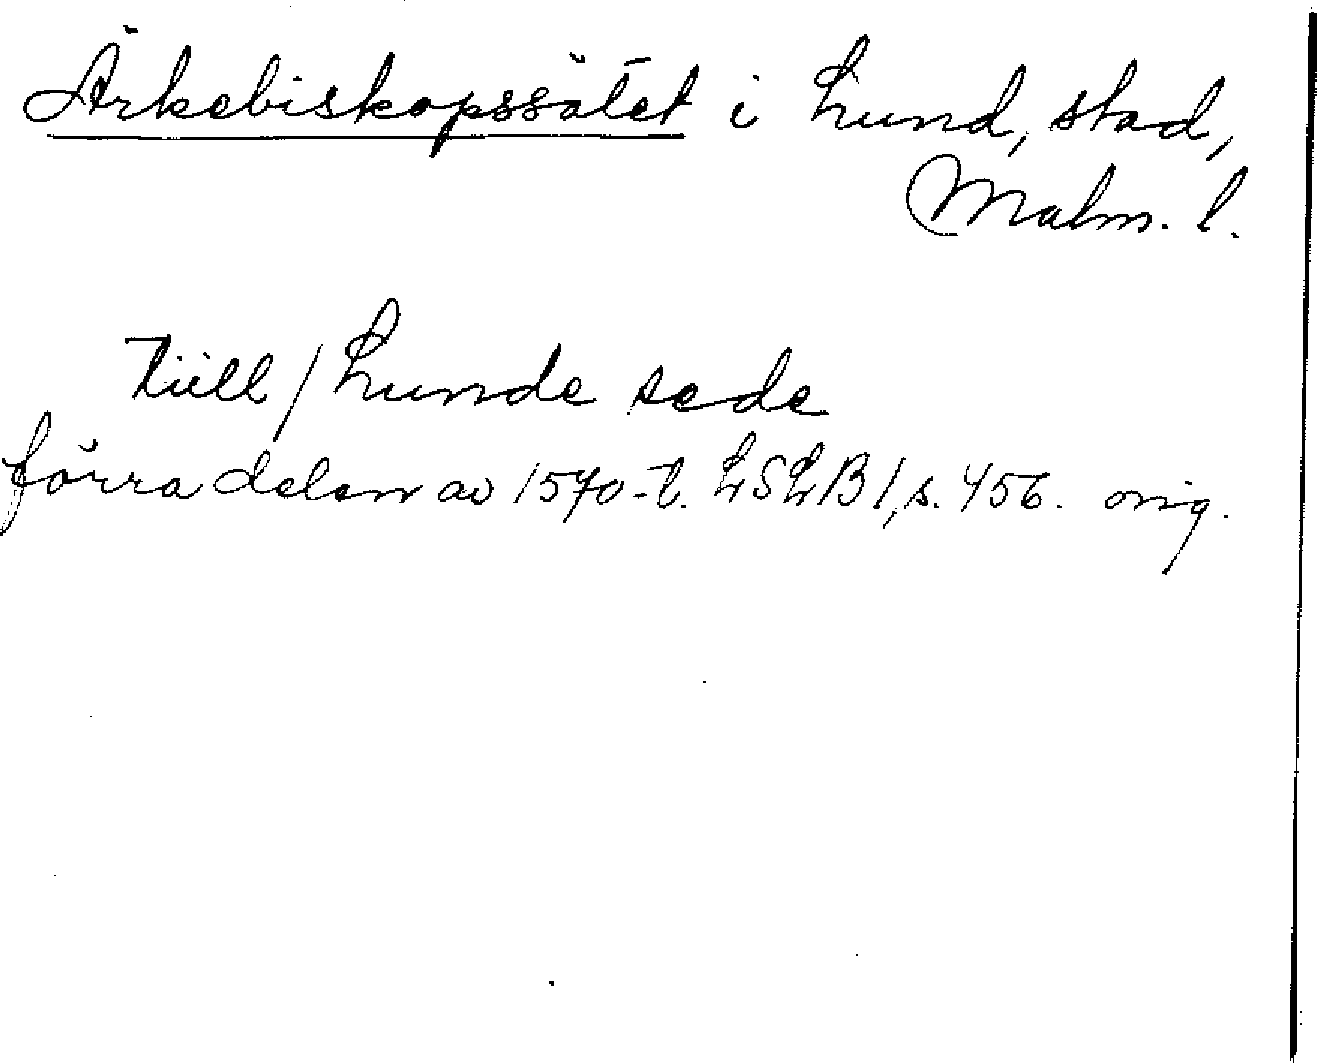 Ärkebiskopssätet i Lund, stad,
Malm. l.
tiill / Lunde sede
förra delen av 1570-t. LSLB 1, s. 456. orig.